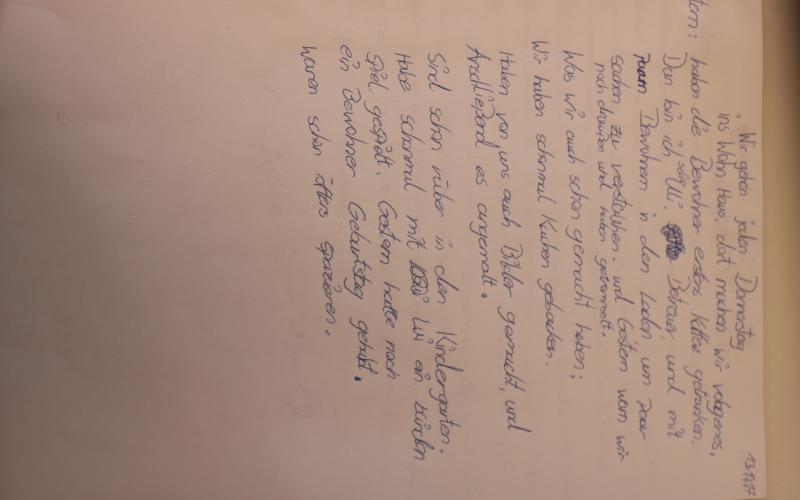 13.9.17
Wir gehen jeden Donnerstag
ins Wohn Haus, dort machen wir
haben die Bewohner erstns Kaffee getrunken.
Dan bin ich Uli, Betreuer, und mit
Bewohnern in den Laden um paar
sachen zu verstauben. und Gestern warn wir
noch draußen und haben gesammelt.
Was wir auch schon gemacht haben:
Wir haben schonmal Kuchen gebacken.
Haben von uns auch Bilder gemacht, und
Anschließend es angemalt.
Sind schon rüber in den Kindergarten.
Habe schonmal mit ein
Spiel gespielt. Gestern hatte noch
ein Bewohner Geburtstag gehabt.
waren schon öfters spazieren.